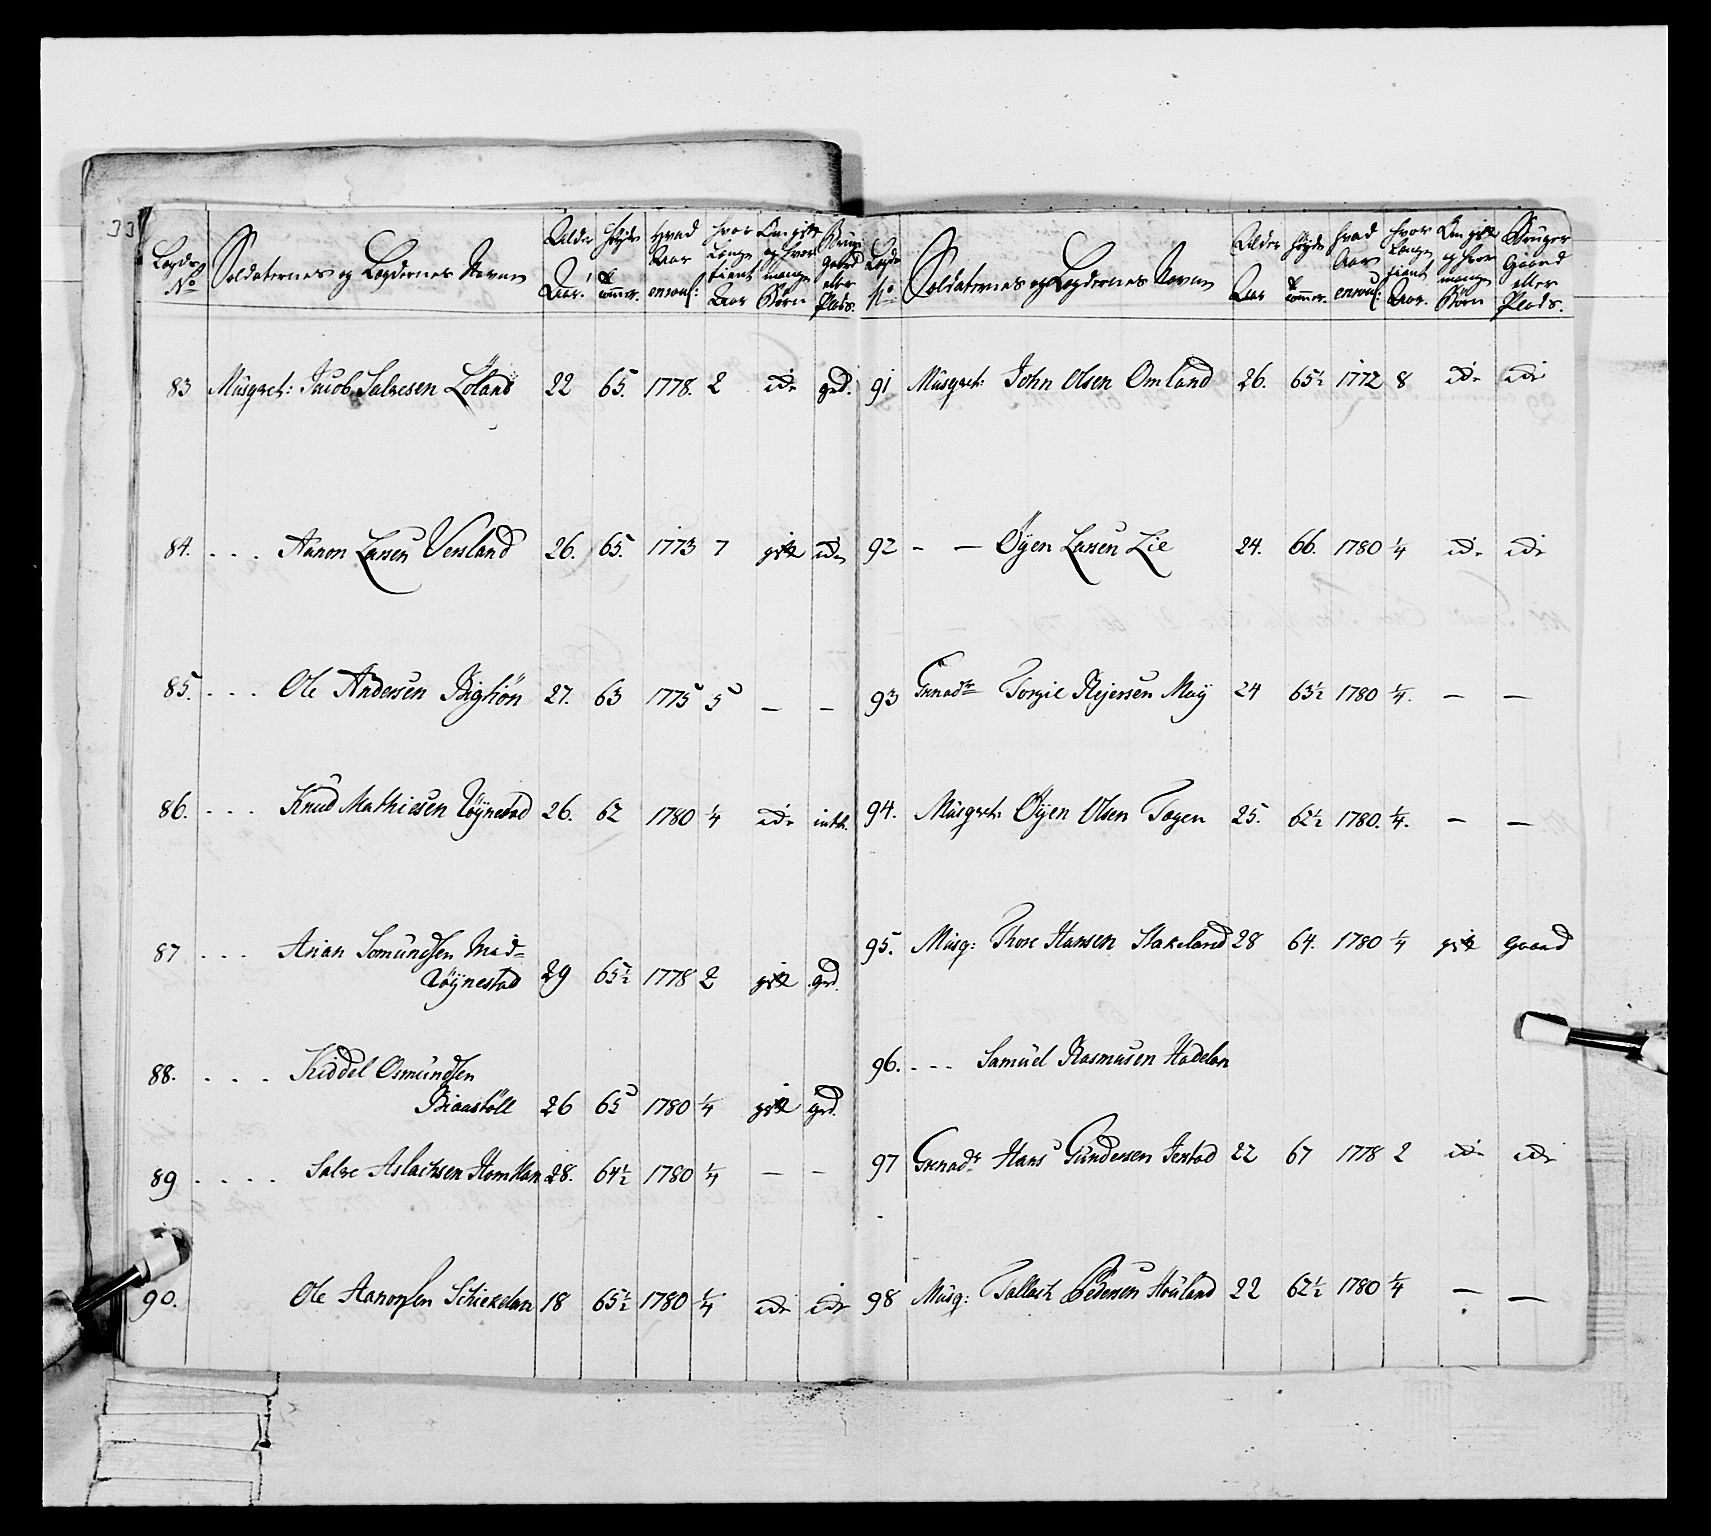 33
Lægds No | Soldaternes og Lægdernes Navne | Alder Aar. | Høyde Tommer. | Hvad Aar enroul: | hvor Længe tient Aar | Om gift og hvor mange Børn | Bruger Gaard eller Plads.
83 Musqvet: Jacob Salvesen Löland 22 65. 1778. 2 idr grd.
84. - - - Aanon Larsen Versland 26. 65. 1773 7 gift idr
85. - - - Ole Andersen Bighön 27. 63 1775 5 — —
86. - - - Knud Mathiesen Röynestad 26. 62 1780 ¼ idr intet.
87 - - - Arian Somundsen Med=
Röynestad 29 65½ 1778 2 gift grd.
88. - - - Kiddel Osmundsen
Biaastöll 26 65 1780 ¼ gift grd.
89 - - - - Salve Aslachsen Homstan 28. 64½ 1780 ¼ — —
90. Ole Aanonsen Schiekelan 18 65½ 1780 ¼ idr idr
Lægds No | Soldaternes og Lægdernes Navne | Alder Aar | Høyde Tommer. | hvad Aar enroul: | hvor Længe tient Aar. | Om gift og hvor mange Börn | Bruger Gaard eller Plads.
91 Musqvet: John Olsen Omland 26. 65½ 1772 8 idr idr
92 - — Öyen Larsen Lie 24. 66. 1780 ¼ idr idr
93 Grenadr Torgie Rejersen May 24 63½ 1780 ¼. — —
94. Musqvet: Öyen Olsen Tagen 25. 62½ 1780. ¼. — —
95. Musq: Thore Hansen Stakeland 28 64. 1780 ¼ gift Gaard
96. - - - Samuel Rasmusen Hadelan
97 Grenadr Hans Gundersen Jestad 22 67 1778 2 idr idr
98 Musq: Tallach Pedersen Houland 22 62½ 1780 ¼ — —